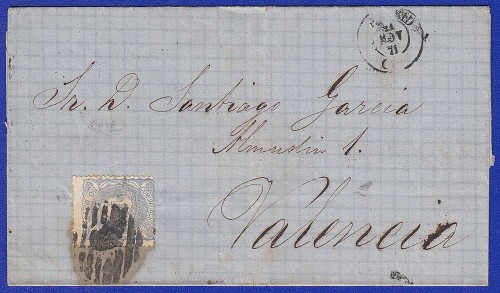 NOV
71
Sr. D. Santiago Garcia
Almudin 1.
Valencia